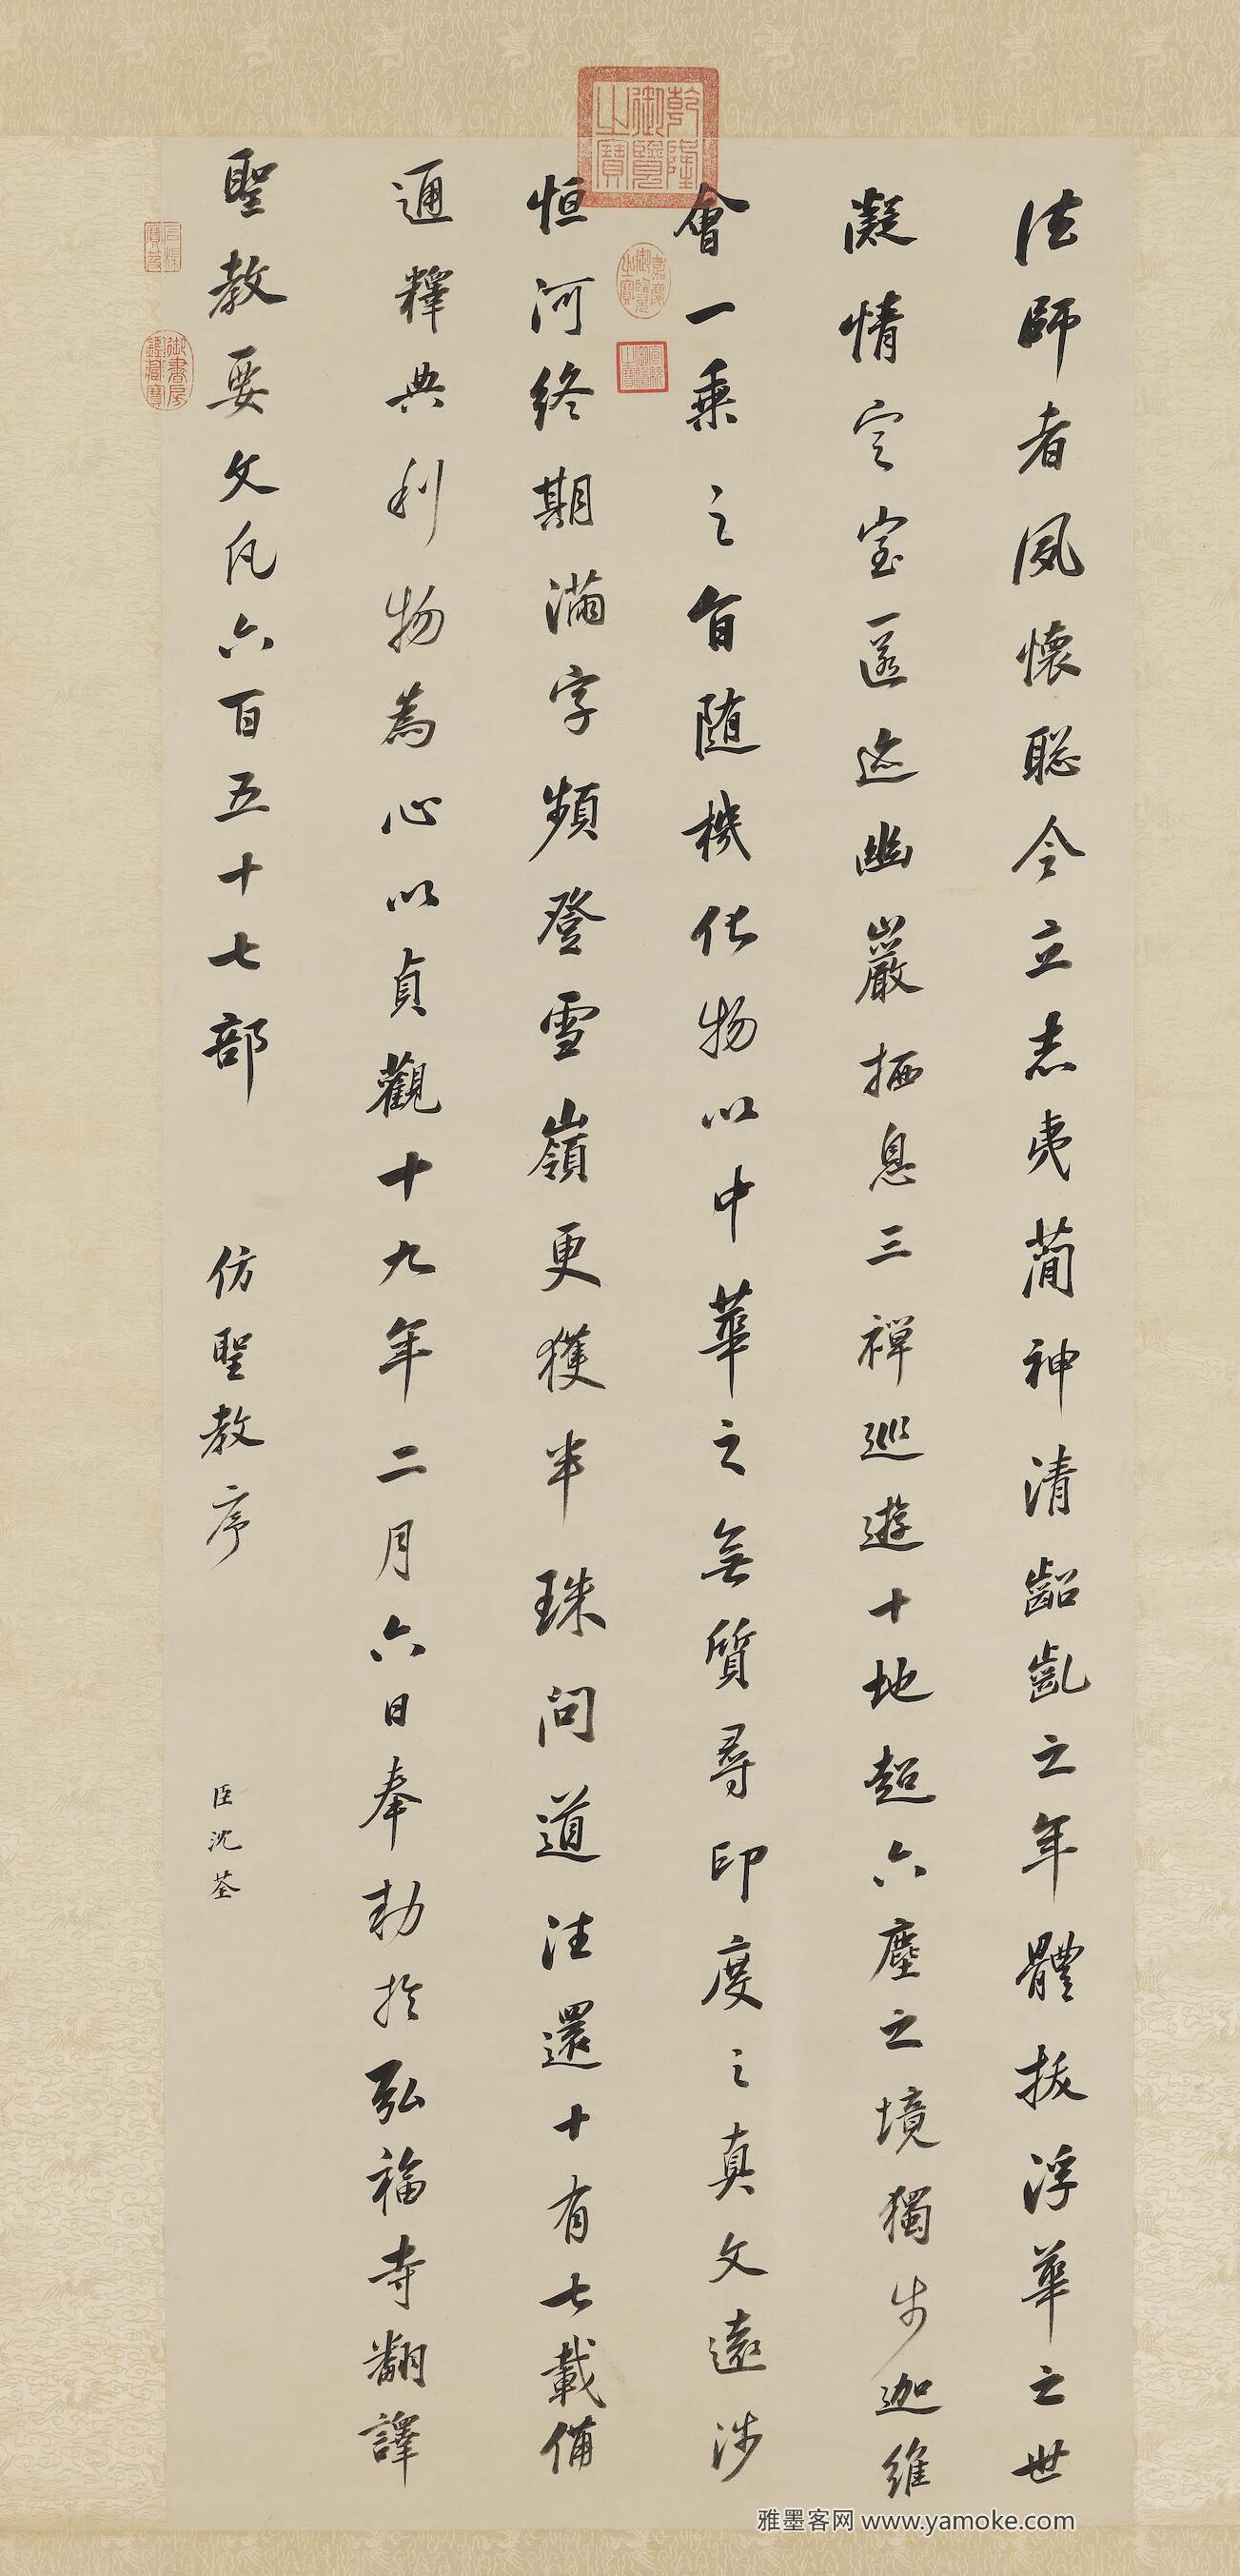 法師者夙懷聰令立志夷簡神清齠齔之年體拔浮華之世
凝情定室匿迹幽巖栖息三禪巡遊十地超六塵之境獨步迦維
會一乘之旨随機化物以中華之無質尋印度之真文遠涉
恒河終期滿字頻登雪嶺更獲半珠問道往還十有七載備
通釋典利物為心以貞觀十九年二月六日奉勅於弘福寺翻譯
聖教要文凡六百五十七部
仿聖教序
臣沈荃
乾隆御覽之寶
嘉慶御覽之寶
宣統御覽之寶
石渠寶笈
御書房鑒藏寶
雅墨客网 www.yamoke.com